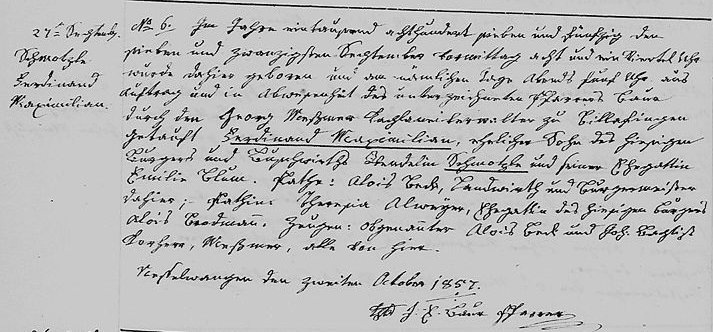 27ten September
Schmotzle
Ferdinand
Maximilian.
No 6. Im Jahre eintausend achthundert sieben und fünfzig den
sieben und zwanzigsten September vormittag acht und ein Viertel Uhr
wurde dahier geboren und am nämlichen Tage Abends fünf Uhr aus
Auftrag und in Abwesenheit des unterzeichneten Pfarrers Baur
durch den Georg Meßmer zu Billafingen
getauft Ferdinand Maximilian, ehelicher Sohn des hiesigen
Bürgers und Wendelin Schmotzle und seiner Ehegattin
Emilie Blum. Pathe: Alois Beck, Landwirth und Bürgermeister
dahier; Pathin: Theresia Alweyer, Ehegattin des hiesigen Bürgers
Alois Brodmann. Zeugen: obgenannter Alois Beck und Joh. Baptist
Meßmer, alle von hier.
Nesselwangen den zweiten October 1857.
J. X. Baur Pfarrer